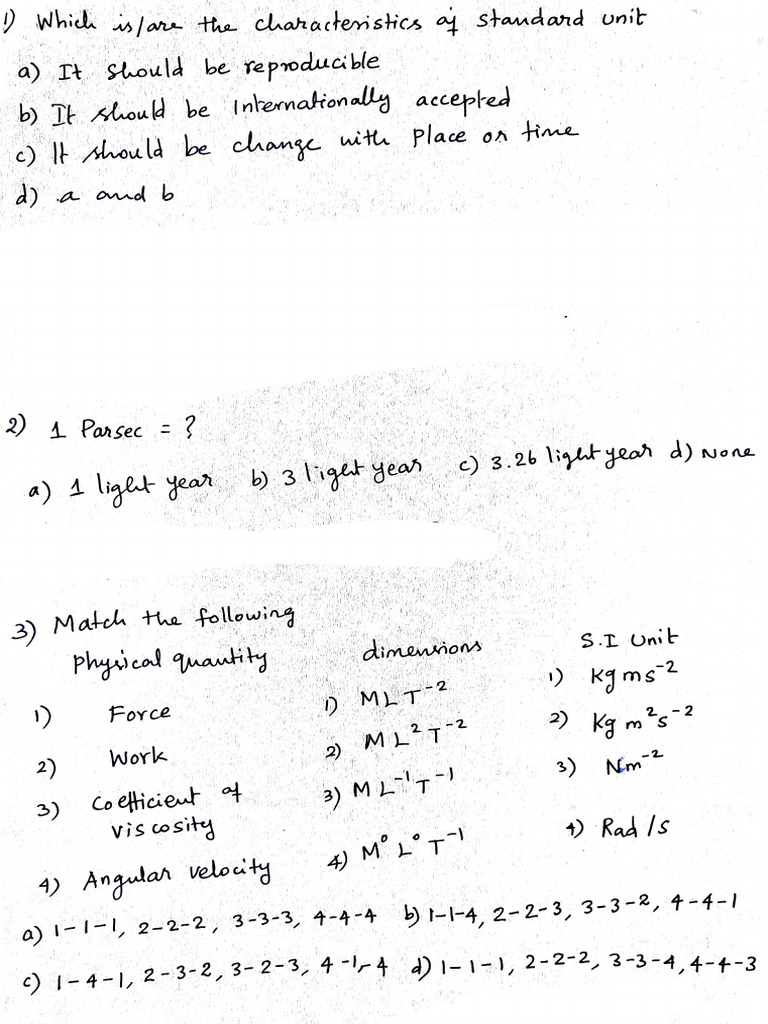 1) Which is/are the characteristics of standard unit
a) It should be reproducible
b) It should be Internationally accepted
c) It should be change with Place or time
d) a and b
2) 1 Parsec = ?
a) 1 light year b) 3 light year c) 3.26 light year d) None
3) Match the following
Physical quantity dimensions S.I Unit
1) Force 1) MLT⁻² 1) Kgms⁻²
2) Work 2) ML²T⁻² 2) Kg m²s⁻²
3) Coefficient of viscosity 3) ML⁻¹T⁻¹ 3) Nm⁻²
4) Angular velocity 4) M⁰L⁰T⁻¹ 4) Rad/s
a) 1-1-1, 2-2-2, 3-3-3, 4-4-4 b) 1-1-4, 2-2-3, 3-3-2, 4-4-1
c) 1-4-1, 2-3-2, 3-2-3, 4-1-4 d) 1-1-1, 2-2-2, 3-3-4, 4-4-3